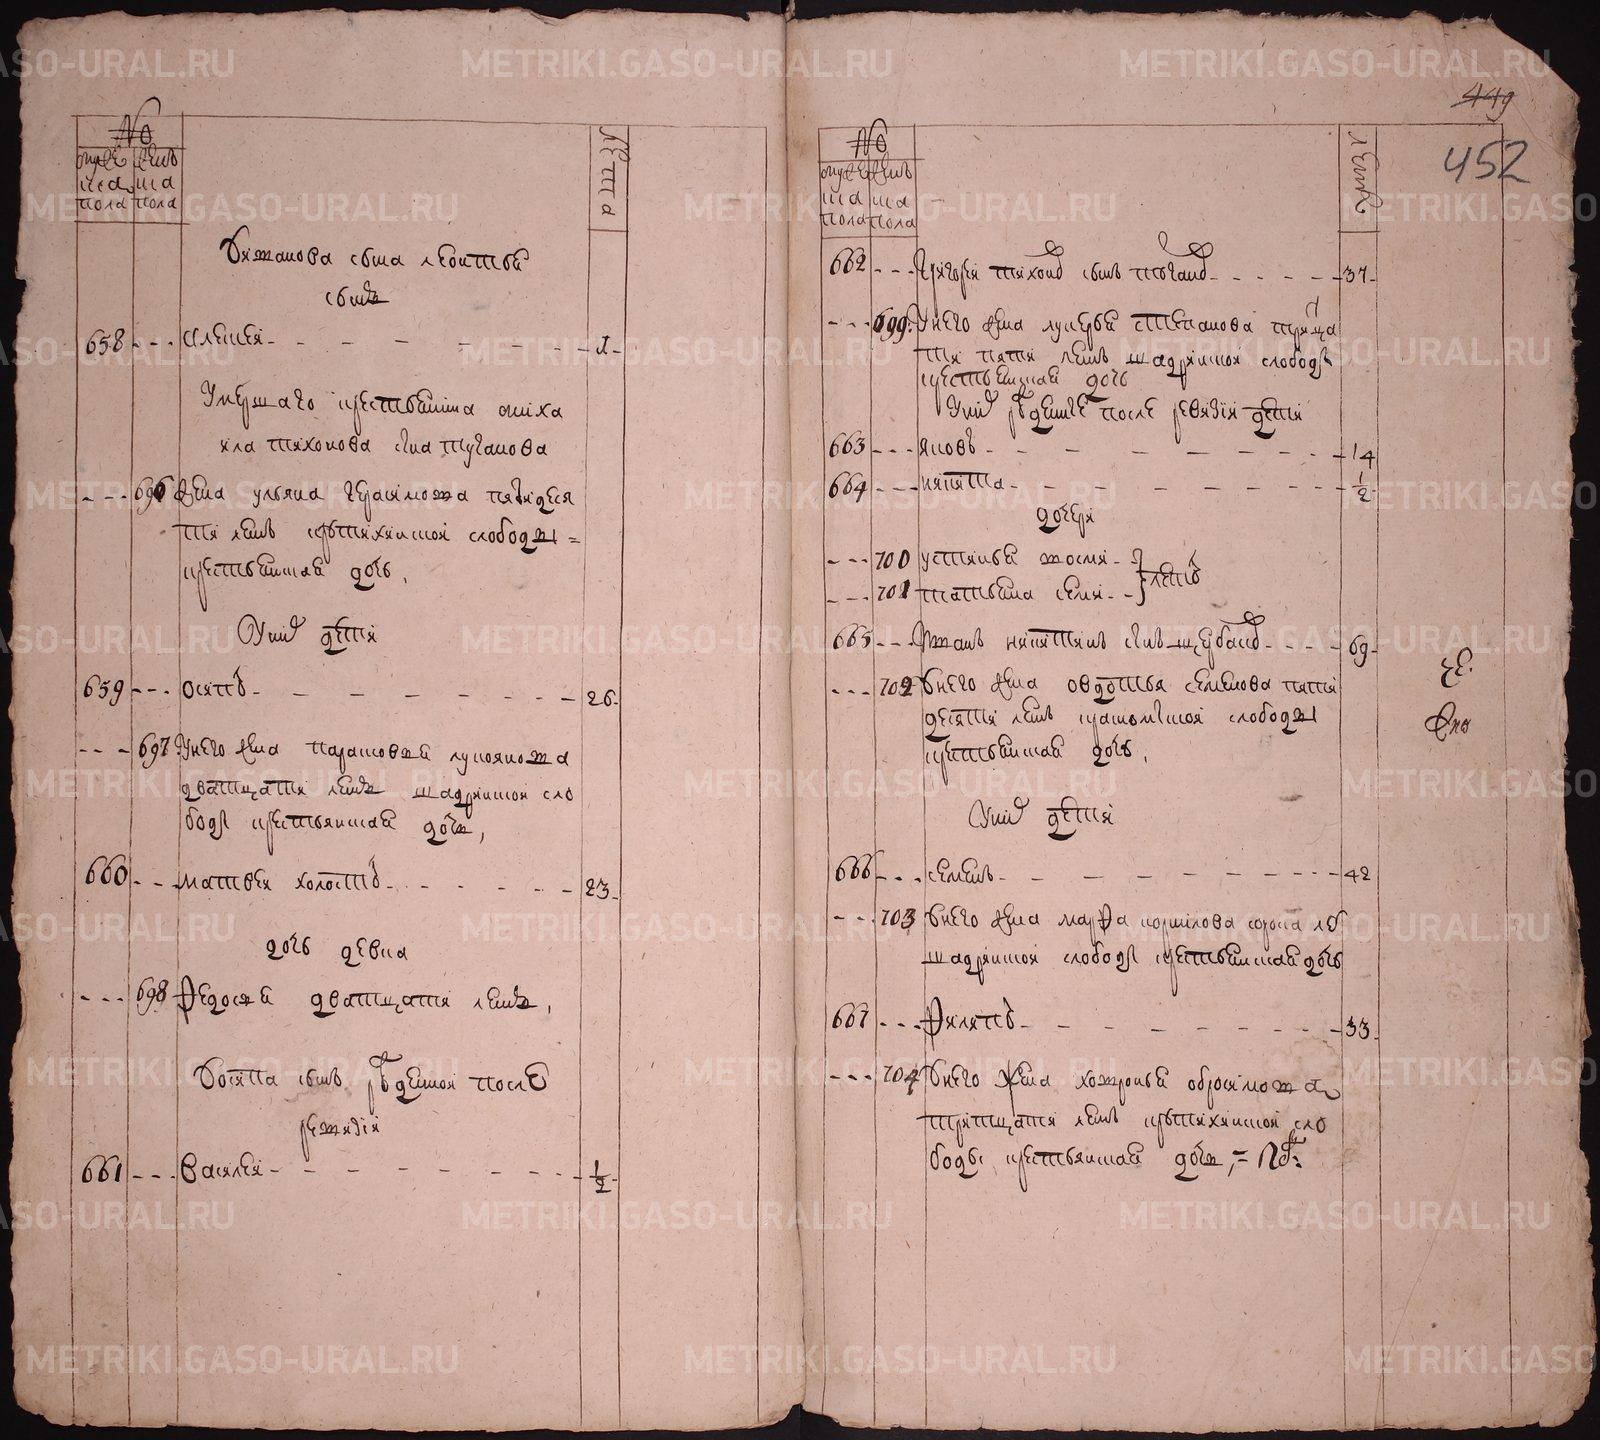 449
452
№
мужеска пола
женска пола
лета
Уяжанова сына леонтья
сынъ
658 - - - Алексей - 1 -
Умершаго крестьянина миха
ила тихонова сына туганова
- - - 696 жена ульяна герасимова пятидеся
ти летъ крутихинской слободы =
крестьянская дочь,
У нихъ дети
659 - - - Осипъ - 26 -
- - - 697 У него жена парасковья лукоянова
дватцати летъ шадринской сло
боды крестьянская дочь,
660 - - - Матвей холостъ - 23 -
дочь девка
- - - 698 Федосья дватцати летъ,
У осипа сынъ рожденной после
ревизии
661 - - - Василей - 1/2 -
№
мужеска пола
женска пола
лета
662 - - - Григорей тихоновъ сынъ тугановъ - 37 -
- - - 699 У него жена лукерья степанова тритца
ти пяти летъ шадринской слободы
крестьянская дочь
У нихъ рожденные после ревизии дети
663 - - - Яковъ - 14
664 - - - Никита - 1/2
дочери
- - - 700 Устинья восми
- - - 701 татьяна семи } летъ
665 - - - Иванъ никитинъ сынъ щербаковъ - 69 -
- - - 702 У него жена овдотья семенова пяти
десяти летъ красномыской слободы
крестьянская дочь,
У нихъ дети
666 - - - Семенъ - 42
- - - 703 У него жена марфа корнилова сорока ле
шадринской слободы крестьянская дочь
667 - - - Филипъ - 33 -
- - - 704 У него жена хавронья обросимова
тритцати летъ крутихинской сло
боды крестьянская дочь, =
METRIKI.GASO-URAL.RU